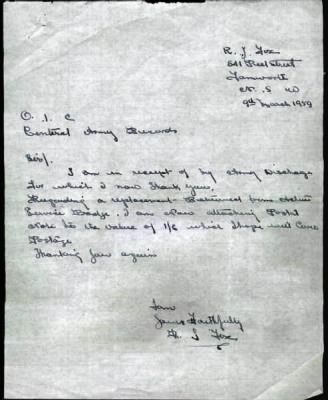 R. J. Fox
541 Peel Street
Tamworth
N. S. W
9th March 1959
O. I. C
Central Army Records
Sir/.
I am in receipt of my Army Discharge
for which I now thank you.
Regarding a replacement Retirement from Active
Service Badge. I am now attaching Postal
note to the value of 1/6 which I hope will cover
Postage
Thanking you again
I am
Yours Faithfully
R J Fox